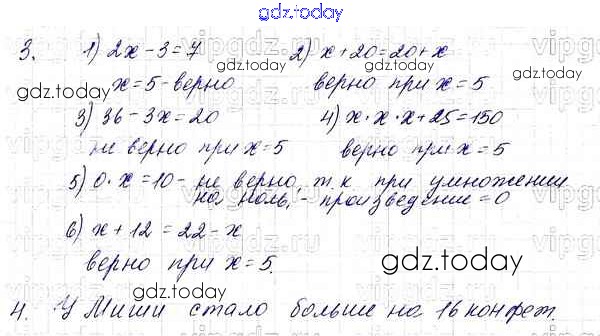 gdz.today
3. 1) 2x-3=7 2) x+20=20+x
x=5-верно верно при x=5
gdz.today gdz.today
3) 36-3x=20 4) x·x·x+25=150
не верно при x=5 верно при x=5
5) 0·x=10- не верно, т.к при умножении
на ноль,- произведение=0
gdz.today
6) x+12=22-x
верно при x=5.
gdz.today
gdz.today
4. У Миши стало больше на 16 конфет.